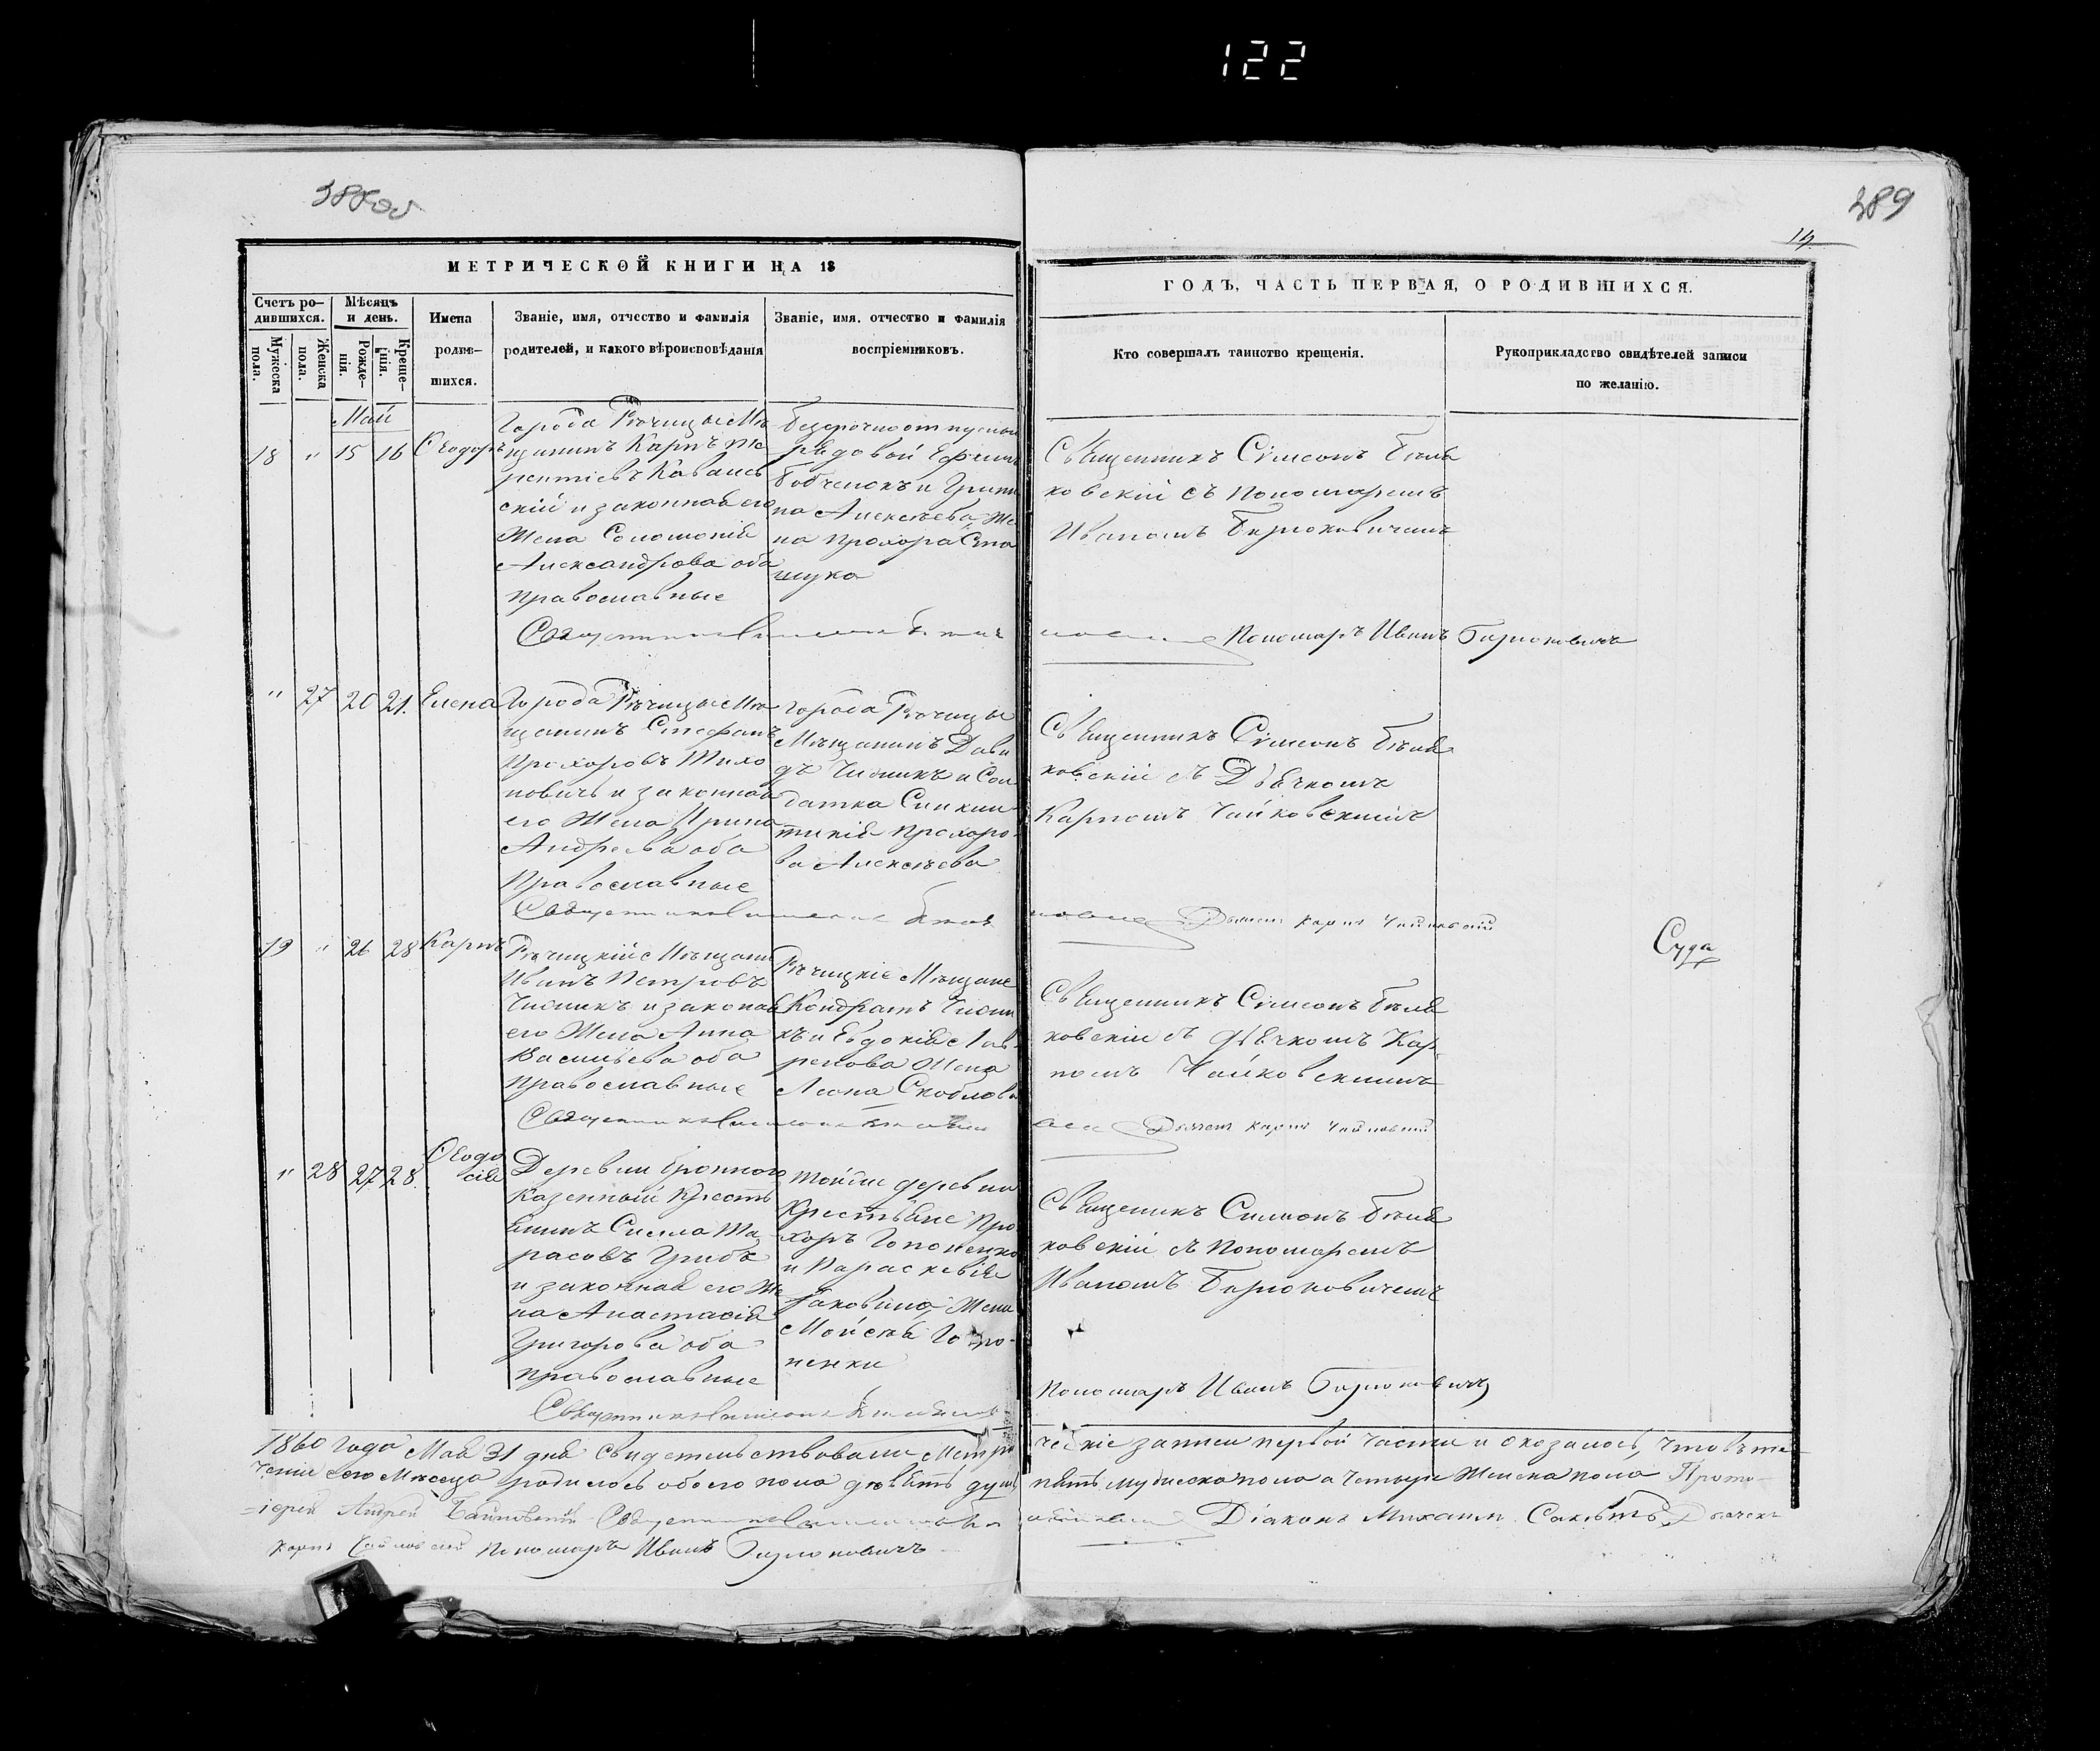 122
388об
389
14
МЕТРИЧЕСКОЙ КНИГИ НА 18
Счетъ ро-
дившихся.
Мужеска
пола.
Женска
пола.
Мѣсяцъ
и день.
Рожде-
нія.
Креще-
нія.
Имена
родив-
шихся.
Званіе, имя, отчество и фамилія
родителей, и какого вѣроисповѣданія
Званіе, имя. отчество и фамилія
воспріемниковъ.
ГОДЪ, ЧАСТЬ ПЕРВАЯ, О РОДИВШИХСЯ.
Кто совершалъ таинство крещенія.
Рукоприкладство свидѣтелей записи
по желанію.
Май
18 " 15 16 Ѳеодоръ
Города Рѣчицы Мѣ
щанинъ Карпъ Те
рентіевъ Ковалев
скій и законная его
Жена Соломонія
Александрова оба
православные
безсрочноотпускный
рядовой Ефимъ
Бобченокъ и Ирина
Алексѣева, Же
на Прохора
Священникъ Сѵмеонъ Бѣля
ковскій съ Пономаремъ
Иваномъ Бирюковичемъ
Священникъ Сѵмеонъ Бѣляковскій Пономарь Иванъ Бирюковичъ
" 27 20 21. Елена
Города Рѣчицы Мѣ
щанинъ Стефанъ
Прохоровъ Тихо
новичъ и законная
его Жена Ирина
Андреева оба
Православные
Города Рѣчицы
Мѣщанинъ Дави
дъ Чижикъ и Сол
датка Синкли
тикія Прохоро-
ва Алексѣева
Священникъ Сѵмеонъ Бѣля
ковскій съ Дьячкомъ
Карпомъ Чайковскимъ
Священникъ Сѵмеонъ Бѣляковскій Дьячекъ Карпъ Чайковскій
19 " 26 28 Карпъ
Рѣчицкій Мѣщанинъ
Иванъ Петровъ
Чижикъ и законная
его Жена Анна
Васильева оба
православные
Рѣчицкіе Мѣщане
Кондратъ Чижи
къ и Евдокія Лав-
ренова Жена
Леона Скоблова
Священникъ Сѵмеонъ Бѣля
ковскій съ дьячкомъ Кар-
помъ Чайковскимъ
Суда
Священникъ Сѵмеонъ Бѣляковскій Дьячекъ Карпъ Чайковскій
" 28 27 28. Ѳеодо
сія
Деревни Броннаго
казенный Кресть
янинъ Сисла Та-
расовъ Грибъ
и законная его Же
на Анастасія
Григорова оба
православные
Той же деревни
Крестьяне Про
хоръ Гопоненко
и Параскевія
Яковина, Жена
Моисея Гопо-
ненки
Священникъ Симеонъ Бѣля
ковскій съ Пономаремъ
Иваномъ Бирюковичемъ
Священникъ Симеонъ Бѣляковскій
Пономарь Иванъ Бирюковичъ
1860 Года Мая 31 дня свидетельствовали Метри ческіе записи первой части и оказалось, что въ те
ченіи сего Мѣсяца родилось обоего пола девять душъ пять мужеска пола а четыре Женска пола Прото-
=іерей Андрей Священникъ Сѵмеонъ Бѣляковскій Діаконъ Михаилъ Дьячекъ
Карпъ Чайковскій Пономарь Иванъ Бирюковичъ